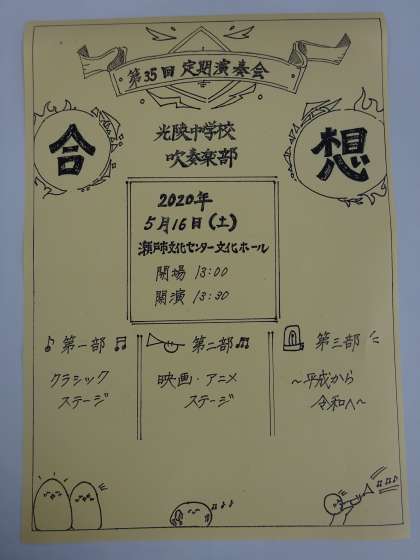 第35回 定期演奏会
合
想
光陵中学校
吹奏楽部
2020年
5月16日(土)
瀬戸市文化センター文化ホール
開場 13:00
開演 13:30
第一部
クラシック
ステージ
第二部
映画・アニメ
ステージ
第三部
~平成から
令和へ~